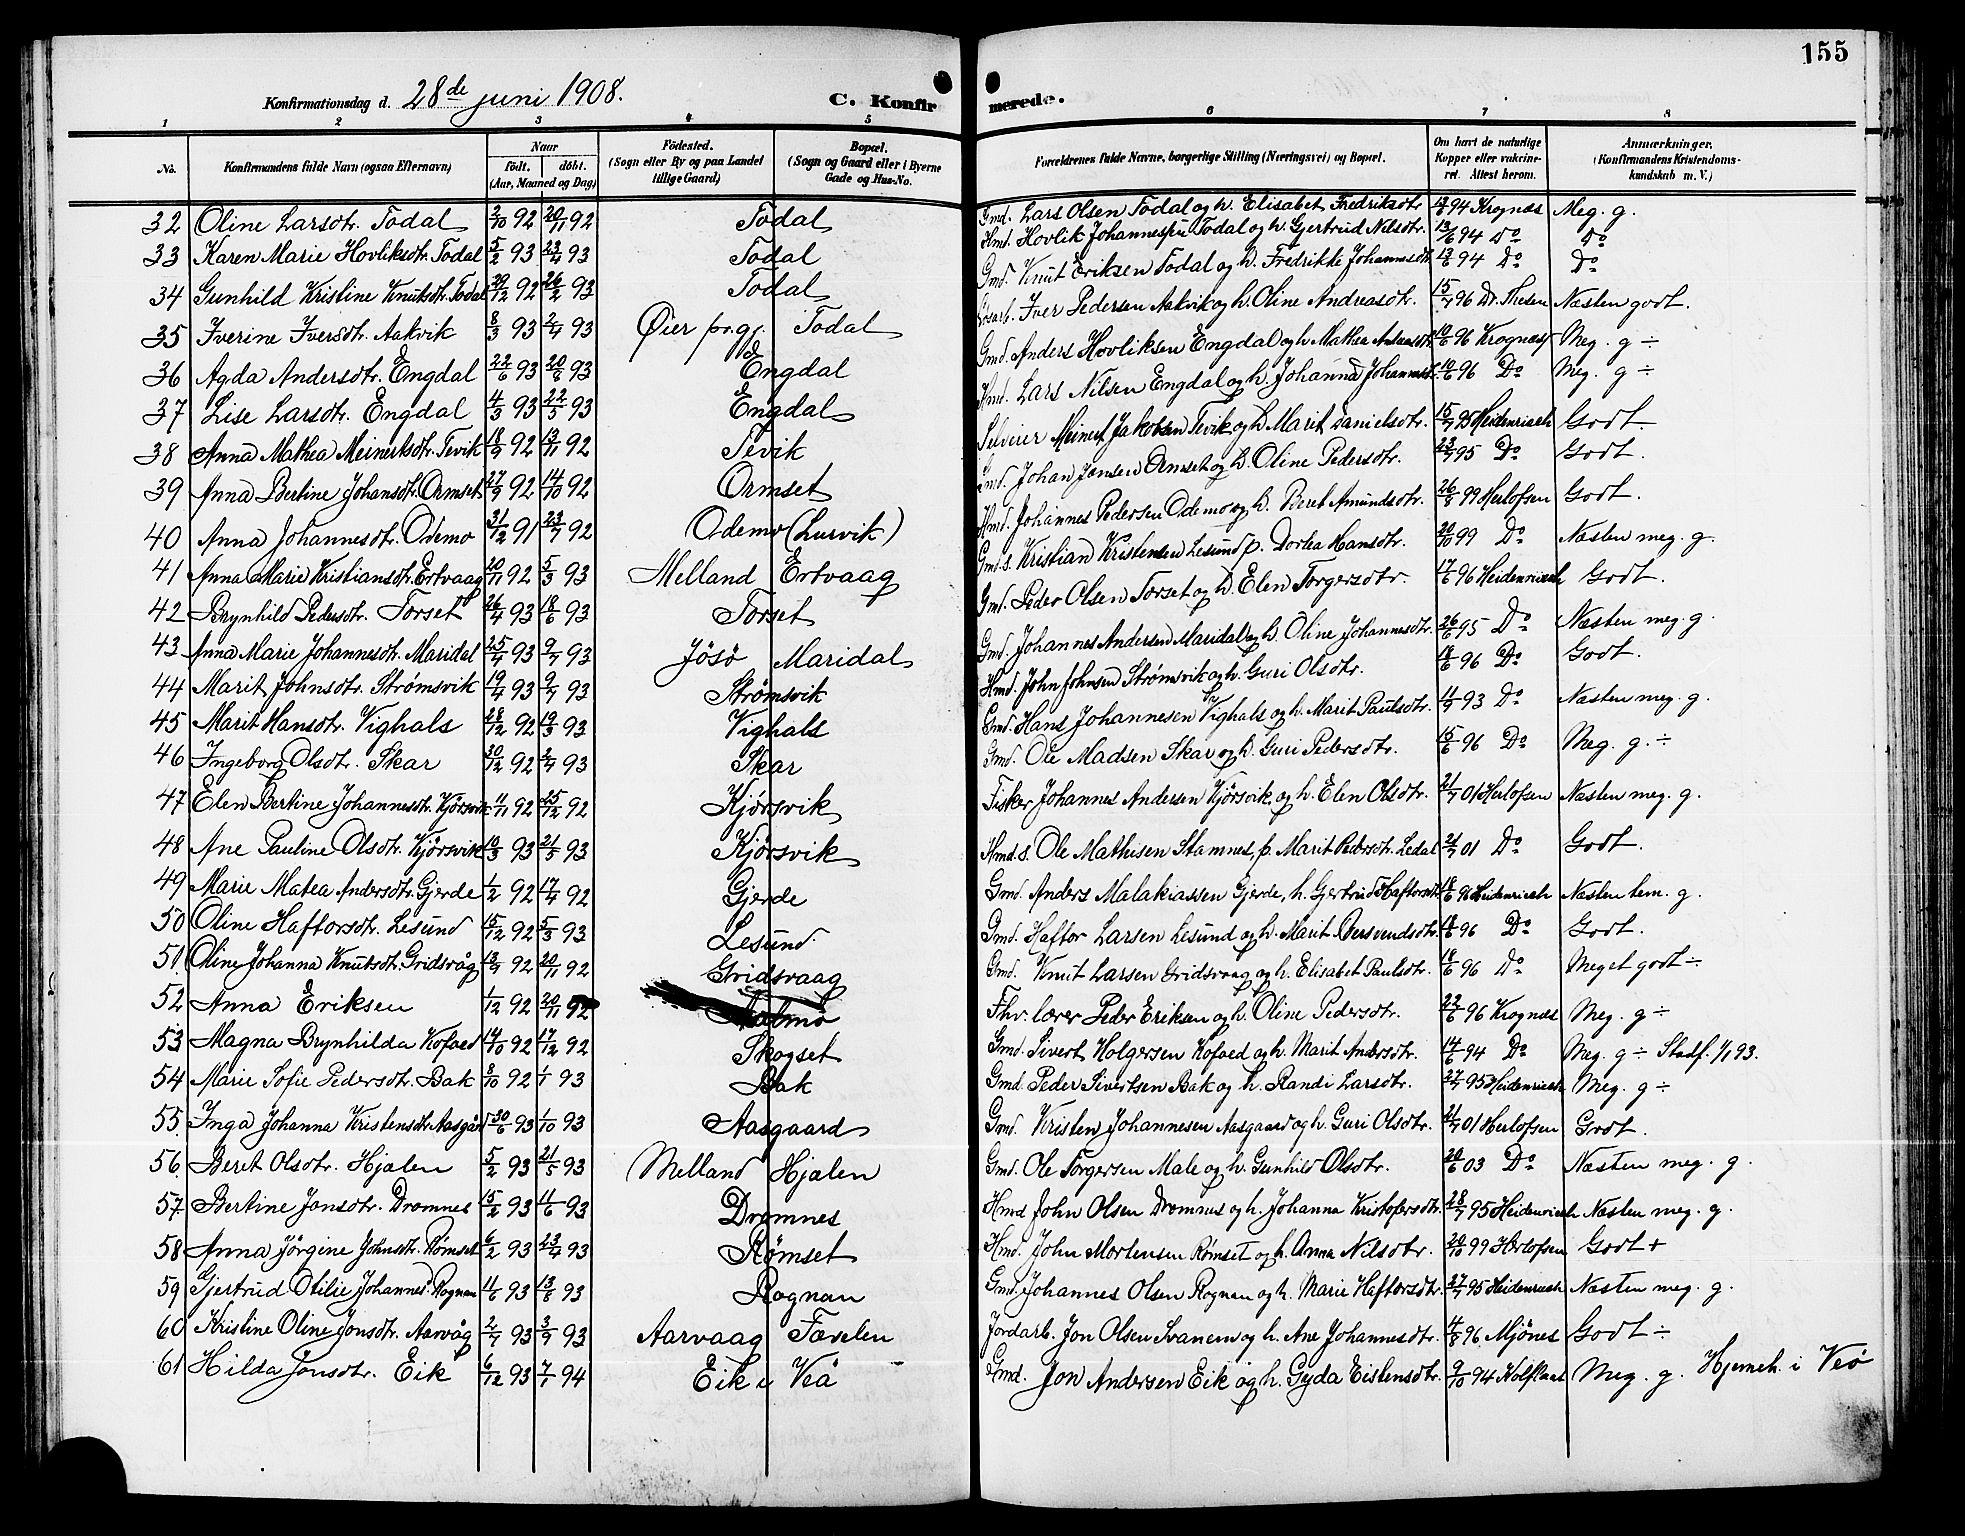 155
Konfirmationsdag d. 28de juni 1908. C. Konfirmerede.
1 2 3 4 5 6 7 8
No. Konfirmandens fulde Navn (ogsaa Efternavn) Naar födt. döbt. (Aar, Maaned og Dag) Födested. (Sogn eller By og paa Landet tillige Gaard) Bopæl. (Sogn og Gaard eller i Byerne Gade og Hus-No. Forældrenes fulde Navne, borgerlige Stilling (Næringsvei) og Bopæl. Om havt de naturlige Kopper eller vakcineret. Attest herom. Anmærkninger. (Konfirmandens Kristendomskundskab m. V.)
32 Oline Larsdtr. Todal 2/10 92 20/11 92 Todal Gmd. Lars Olsen Todal og h. Elisabet Fredriksdtr 13/6 94 Krognæs Meg. g.
33 Karen Marie Hovliksdtr. Todal 5/2 93 23/4 93 Todal Hmd. Hovlik Johannessen Todal og h. Gjertrud Nilsdtr. 13/6 94 Do Do
34 Gunhild Kristine Knutsdtr. Todal 29/12 92 26/2 93 Todal Gmd. Knut Eriksen Todal og h. Fredrikke Johannesdt 13/6 94 Do Do
35 Iverine Iversdtr. Aakvik 8/3 93 2/4 93 Øier pr.gj. Todal Iver Pedersen Aakvik og h. Oline Andreasdtr. 15/7 96 Dr. Thesen Næsten godt.
36 Agda Andersdtr. Engdal 22/6 93 20/8 93 Engdal Gmd. Anders Hovliksen Engdal og h. Mathea 10/6 96 Krognæs Meg. g ÷
37 Lise Larsdtr. Engdal 4/3 93 22/5 93 Engdal Hmd. Lars Nilsen Engdal og h. Johanna Johannesdt. 10/6 96 Do Meg. g ÷
38 Anna Mathea Meinertsdtr. Tevik 18/9 92 13/11 92 Tevik Selveier Meinert Jakobsen Tevik og h. Marit Danielsdtr. 15/7 95 Heidenreich Godt
39 Anna Bertine Johansdtr. Ormset 27/9 92 14/10 92 Ormset Gmd. Johan Jonsen Ormset og h. Oline Pedersdtr. 23/7 95 Do Godt.
40 Anna Johannesdtr. Odemo 31/12 91 23/7 92 Odemo (Lurvik) Hmd. Johannes Pedersen Odemo og h. Beret Amundsdtr. 26/8 99 Herlofsen Godt.
41 Anna Marie Kristiansdtr. Ertvaag 20/11 92 5/3 93 Melland Ertvaag Gmd.s. Kristian Kristensen Lesund, p. Dortea Hansdtr. 20/10 99 Do Næsten meg. g.
42 Brynhild Pedersdtr. Torset 26/4 93 18/6 93 Torset Gmd. Peder Olsen Torset og h. Elen Torgersdtr. 17/6 96 Heidenreich Godt.
43 Anna Marie Johannesdtr. Maridal 25/4 93 9/7 93 Jösö Maridal Gmd. Johannes Andersen Maridal og h. Oline Johannesdtr. 26/6 95 Do Næsten meg. g.
44 Marit Johnsdtr. Strømsvik 19/4 93 9/7 93 Strømsvik Hmd. John Johnsen Strømsvik og h. Guri Olsdtr. 18/6 96 Do Godt.
45 Marit Hansdtr. Vighals 28/12 92 19/3 93 Vighals Gmd. Hans Johannesen Vighals og h. Marit Paulsdtr. 4/7 93 Do Næsten meg. g.
46 Ingeborg Olsdtr. Skar 30/12 92 2/4 93 Skar Gmd. Ole Madsen Skar og h. Guri Pedersdtr. 15/6 96 Do Meg. g. ÷
47 Elen Bertine Johannesdtr. Kjörsvik 11/11 92 25/12 92 Kjörsvik Fisker Johannes Andersen Kjörsvik og h. Elen Olsdtr. 21/7 01 Herlofsen Næsten meg. g.
48 Ane Pauline Olsdtr. Kjörsvik 10/3 93 21/5 93 Kjörsvik Hmd.s. Ole Mathisen Stamnes, p. Marit Pedersdtr. Ledal 21/7 01 Do Godt.
49 Marie Matea Andersdtr. Gjerde 1/2 92 17/4 92 Gjerde Gmd. Anders Malakiassen Gjerde, h. Gjertrud Haftorsdt 18/6 96 Heidenreich Næsten tem. g.
50 Oline Haftorsdtr. Lesund 15/12 92 5/3 93 Lesund. Gmd. Haftor Larsen Lesund og h. Marit Bersvendsdtr. 18/6 96 Do Godt.
51 Oline Johanna Knutsdtr. Gridsvåg 13/9 92 20/11 92 Gridsvaag Gmd. Knut Larsen Gridsvaag og h. Elisabet Paulsdtr. 18/6 96 Do Meget godt ÷
52 Anna Eriksen 1/12 92 20/11 92 Fhv. lærer Peder Eriksen og h. Oline Pedersdtr. 22/6 96 Krognæs Meg. g ÷
53 Magna Brynhilda Kofoed 14/10 92 17/12 92 Skogset Gmd. Sivert Holgersen Kofoed og h. Marit Andersdtr. 14/6 94 Do Meg. g ÷ Stadf. 1/1 93.
54 Marie Sofie Pedersdtr. Bak 8/10 92 1/1 93 Bak Gmd. Peder Sivertsen Bak og h. Randi Larsdtr. 27/7 95 Heidenreich Meg. g ÷
55 Inga Johanna Kristensdtr. Aasgård 30/6 93 1/10 93 Aasgaard Gmd. Kristen Johannesen Aasgaard og h. Guri Olsdtr. 21/7 01 Herlofsen Godt.
56 Beret Olsdtr. Hjalen 5/2 93 21/5 93 Melland Hjalen Gmd. Ole Torgersen Male og h. Gunhild Olsdtr. 20/6 03 Do Næsten meg. g.
57 Bertine Jonsdtr. Dromnes 15/2 93 11/6 93 Dromnes Hmd John Olsen Dromnes og h. Johanna Kristofersdtr. 28/7 95 Heidenreich Næsten meg. g.
58 Anna Jörgine Johnsdtr. Römset 6/2 93 23/4 93 Römset Hmd. John Mortensen Römset og h. Anna Nilsdtr. 20/10 99 Herlofsen Godt +
59 Gjertrud Otilie Johannesd. Rognan 11/6 93 13/8 93 Rognan Gmd. Johannes Olsen Rognan og h. Marie Haftorsdtr. 27/7 95 Heidenreich Næsten meg. g.
60 Kristine Oline Jonsdtr. Aarvåg 2/7 93 3/9 93 Aarvaag Tævelen Jordarb. Jon Olsen Svanem og h. Ane Johannesdtr. 4/8 96 Mjönes Godt ÷
61 Hilda Jonsdtr. Eik 6/12 93 7/1 94 Eik i Veö Gmd. Jon Andersen Eik og h. Gyda Eistensdtr. 9/10 94 Meg. g. Hjemeh. i Veö